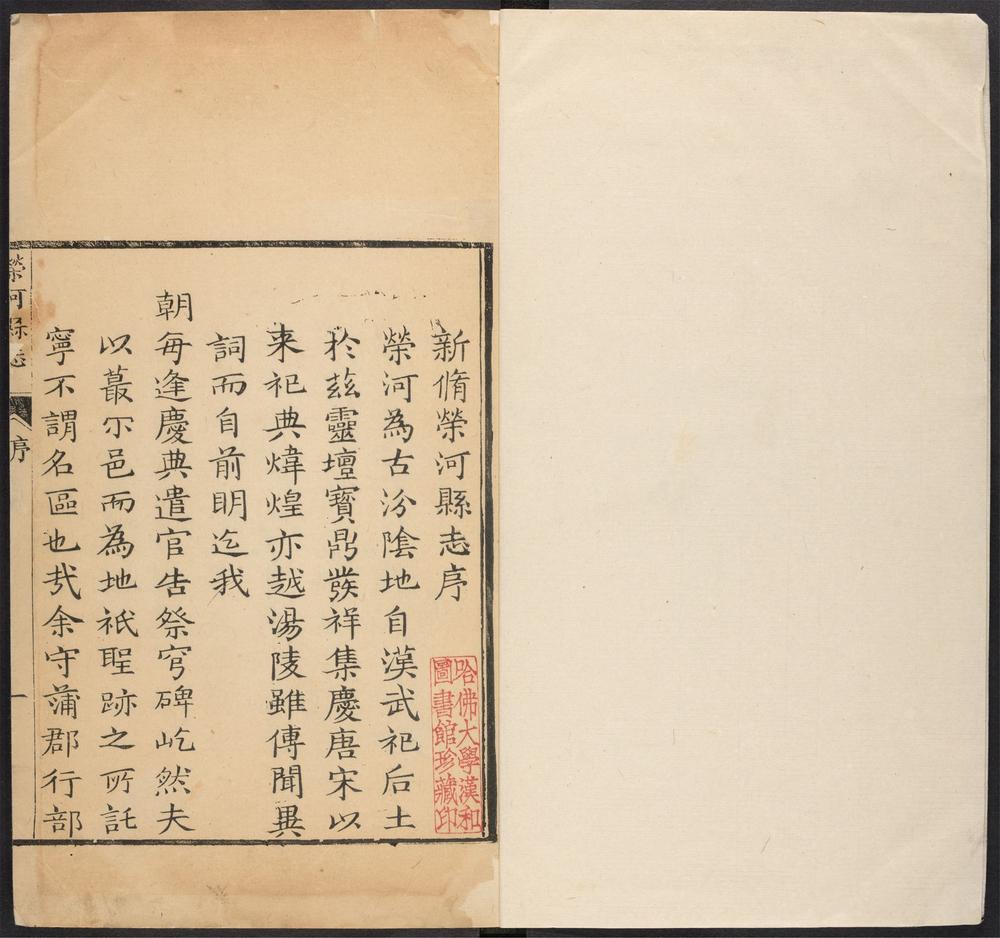 新脩榮河縣志序
榮河為古汾陰地自漢武祀后土
扵兹靈壇寳鼎發祥集慶唐宋以
来祀典煒煌亦越湯陵雖傳聞異
詞而自前明迄我
朝每逢慶典遣官告祭穹碑屹然夫
以蕞尔邑而為地祇聖跡之所託
寧不謂名區也㢤余守蒲郡行部
榮河縣志
序
一
哈佛大學漢和
圖書館珍藏印